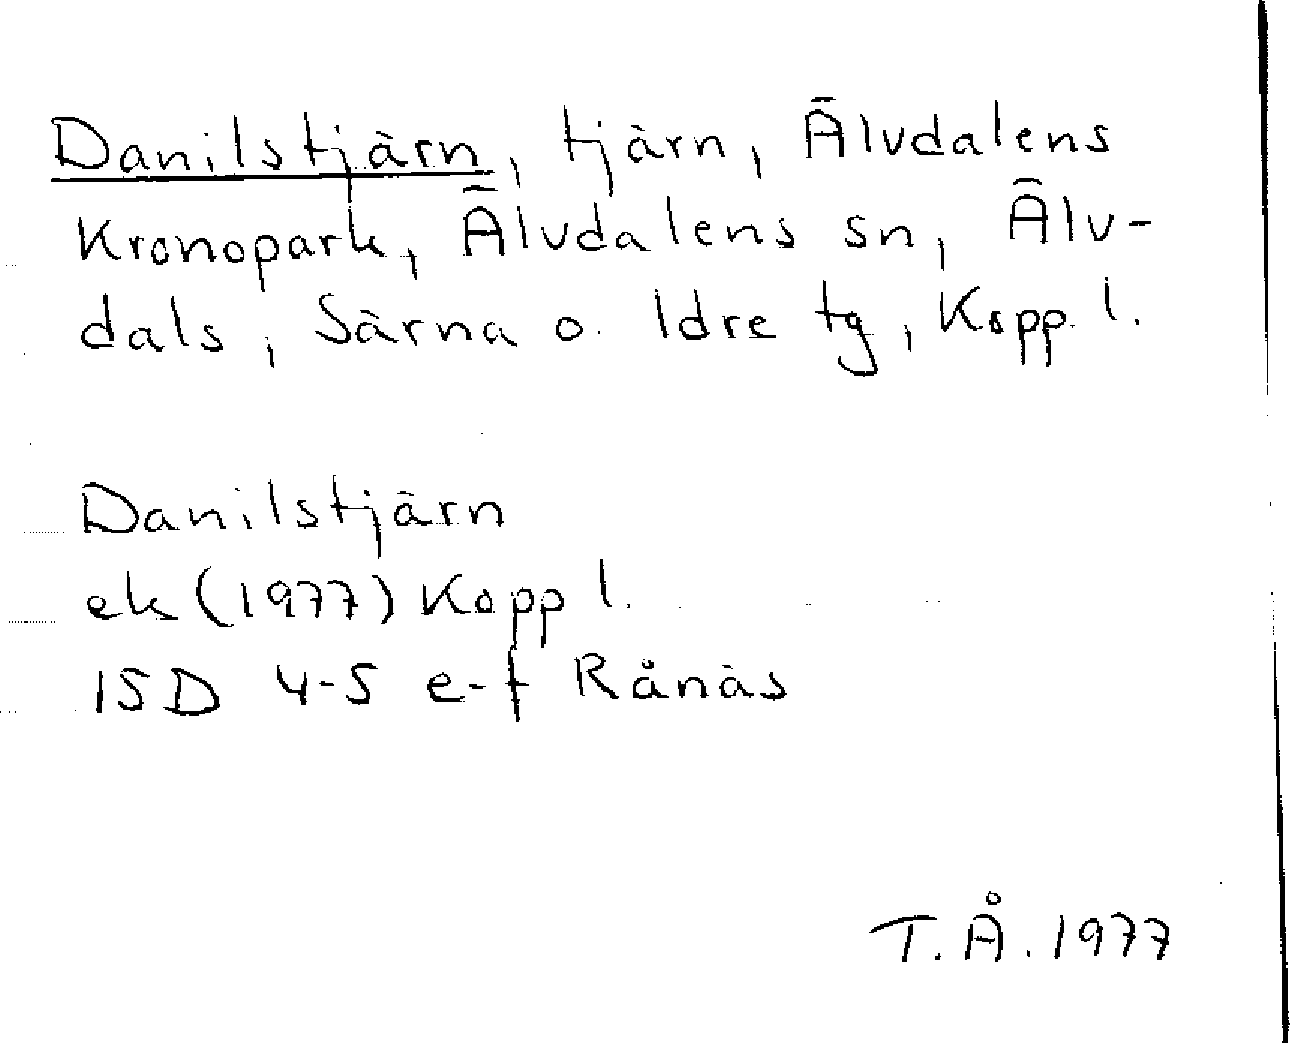 Danilstjärn, tjärn, Älvdalens
Kronopark, Älvdalens sn, Älv-
dals, Särna o. Idre tg, Kopp. l.
Danilstjärn
ek (1977) Kopp l.
15D 4-5 e-f Rånäs
T. Å. 1977